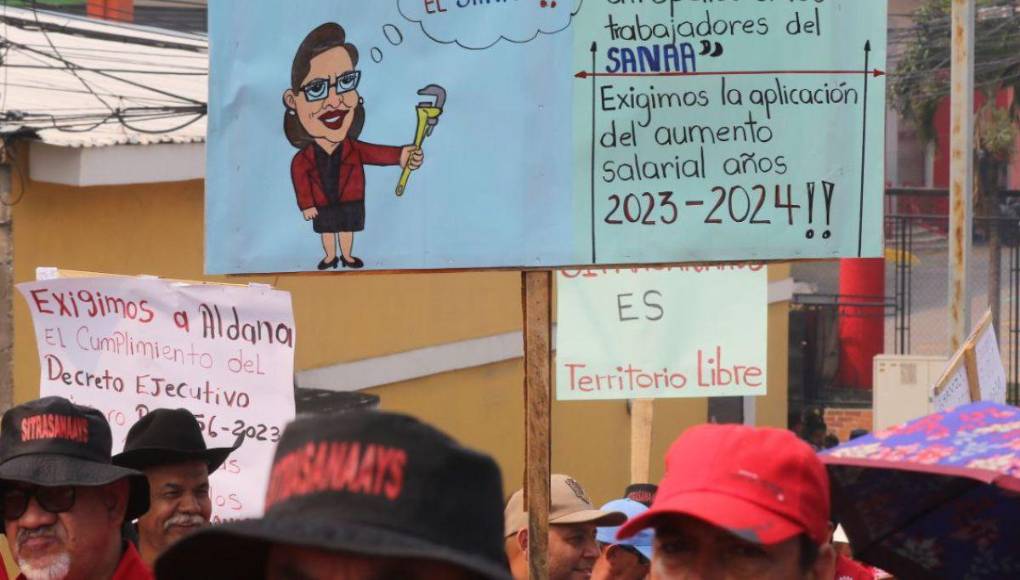 EL SANAA !!
trabajadores del
SANAA”
Exigimos la aplicación
del aumento
salarial años
2023-2024!!
Exigimos a Aldana
El Cumplimiento del
Decreto Ejecutivo
56-2023
ES
Territorio Libre
SITRASANAAYS
SITRASANAAYS